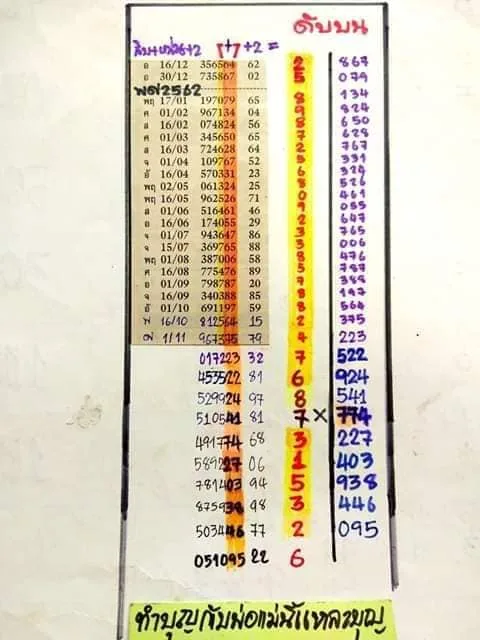 ดับบน
สิบ+หน่วย+2 7+7+2 =
อ 16/12 356564 62 2 867
อ 30/12 735867 02 5 079
พศ2562 8 134
พฤ 17/01 197079 65 9 824
ศ 01/02 967134 04 8 650
ส 16/02 074824 56 7 628
ศ 01/03 345650 65 2 767
ส 16/03 724628 64 5 331
จ 01/04 109767 52 6 324
อั 16/04 570331 23 8 526
พฤ 02/05 061324 25 0 461
พฤ 16/05 962526 71 9 055
ส 01/06 516461 46 2 647
อ 16/06 174055 29 3 765
จ 01/07 943647 86 3 006
จ 15/07 369765 88 8 476
พฤ 01/08 387006 58 5 787
ศ 16/08 775476 89 7 388
อ 01/09 798787 20 8 197
จ 16/09 340388 85 8 564
อั 01/10 691197 59 2 375
พ 16/10 812564 15 4 223
1/11 967375 79 7 522
017223 32 6 924
453522 81 8 541
529924 97 7 × 774
510541 81 3 227
491774 68 1 403
589227 06 5 938
781403 94 3 446
875938 98 2 095
503446 77 6
051095 22
ทำบุญกับพ่อแม่นี่แหละบุญ